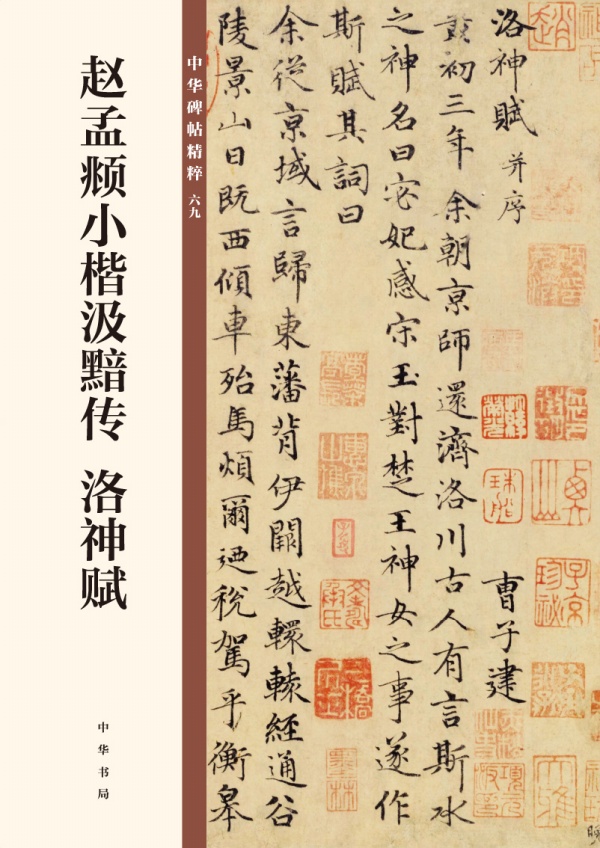 赵孟𫖯小楷汲黯传 洛神赋
中华书局
中华碑帖精粹 六九
洛神賦 并序 曹子建
黃初三年余朝京師還濟洛川古人有言斯水
之神名曰宓妃感宋玉對楚王神女之事遂作
斯賦其詞曰
余從京域言歸東藩背伊闕越轘轅經通谷
陵景山日既西傾車殆馬煩爾迺稅駕乎衡皋